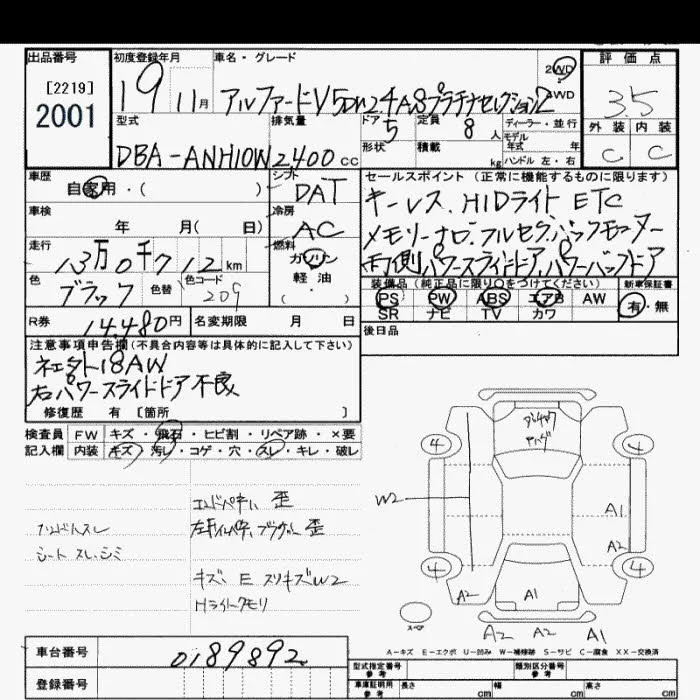 出品番号 初度登録年月 車名・グレード 評価点
[2219]
2001
19 11月 アルファードV 5Dr 24 AS プラチナセレクション2
2WD
4WD
3.5
型式 排気量 ドア 定員 ディーラー・並行
5 8人 モデル年式 年
外装 内装
DBA-ANH10W 2400cc 形状 積載 kg ハンドル 左・右
C C
車歴 自家用・( ) シフト DAT
セールスポイント(正常に機能するものに限ります)
キーレス、HIDライト ETC
車検 年 月(日) 冷房 AC
メモリーナビ、フルセグ、バックモニター
走行 13万0千712km 燃料 ガソリン
軽油
( )
両側パワースライドドア、パワーバックドア
色 ブラック 色替 色コード 209
装備品(純正品に限り○をつけてください) 新車保証書
PS PW ABS エアB AW 有・無
SR ナビ TV カワ
R券 14,480円 名変期限 月 日
後日品
注意事項申告欄(不具合内容等は具体的に記入して下さい)
18AW
右パワースライドドア不良
修復歴 有[箇所 ]
検査員 FW キズ・飛石・ヒビ割・リペア跡・×要
記入欄 内装 キズ・汚レ・コゲ・穴・スレ・キレ・破レ
歪
歪
シート スレ・シミ
キズ、E スリキズW2
Hライトクモリ
4 4
W2
A1
A2
4 4
A2 A1
スペア
A2 A2 A1
A-キズ E-エクボ U-凹み W-補修跡 S-サビ C-腐食 XX-交換済
車台番号 0189892
登録番号
型式指定番号 参考 類別区分番号 参考
車庫証明用 参考 長さ cm 幅 cm 高さ cm